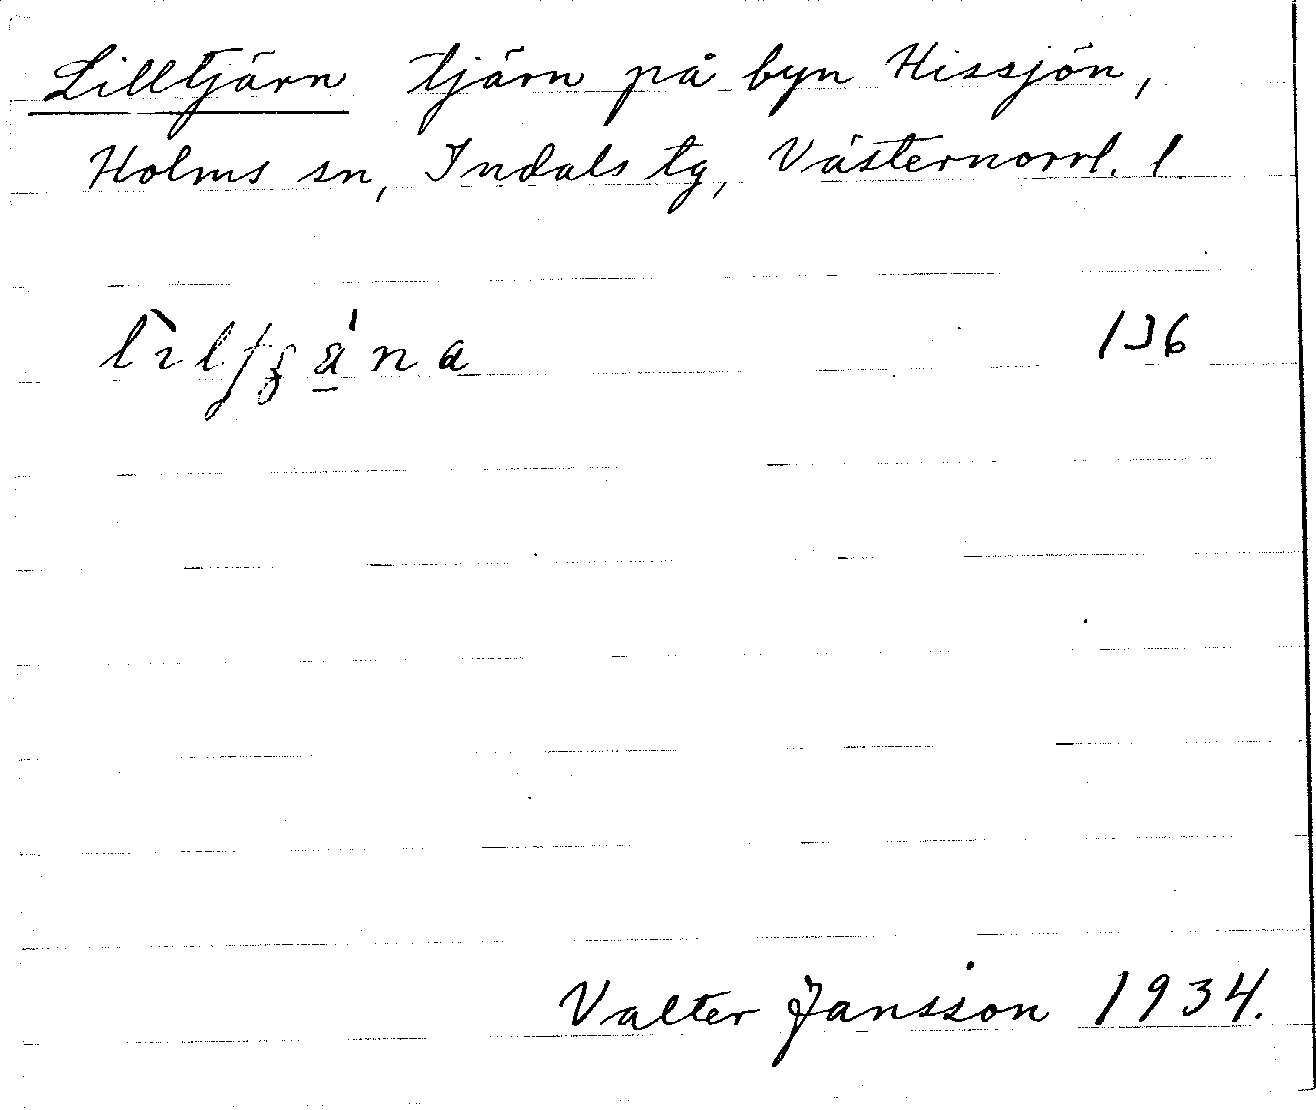 Lilltjärn tjärn på byn Hissjön,
Holms sn, Indals tg, Västernorrl. l.
136
Valter Jansson 1934.